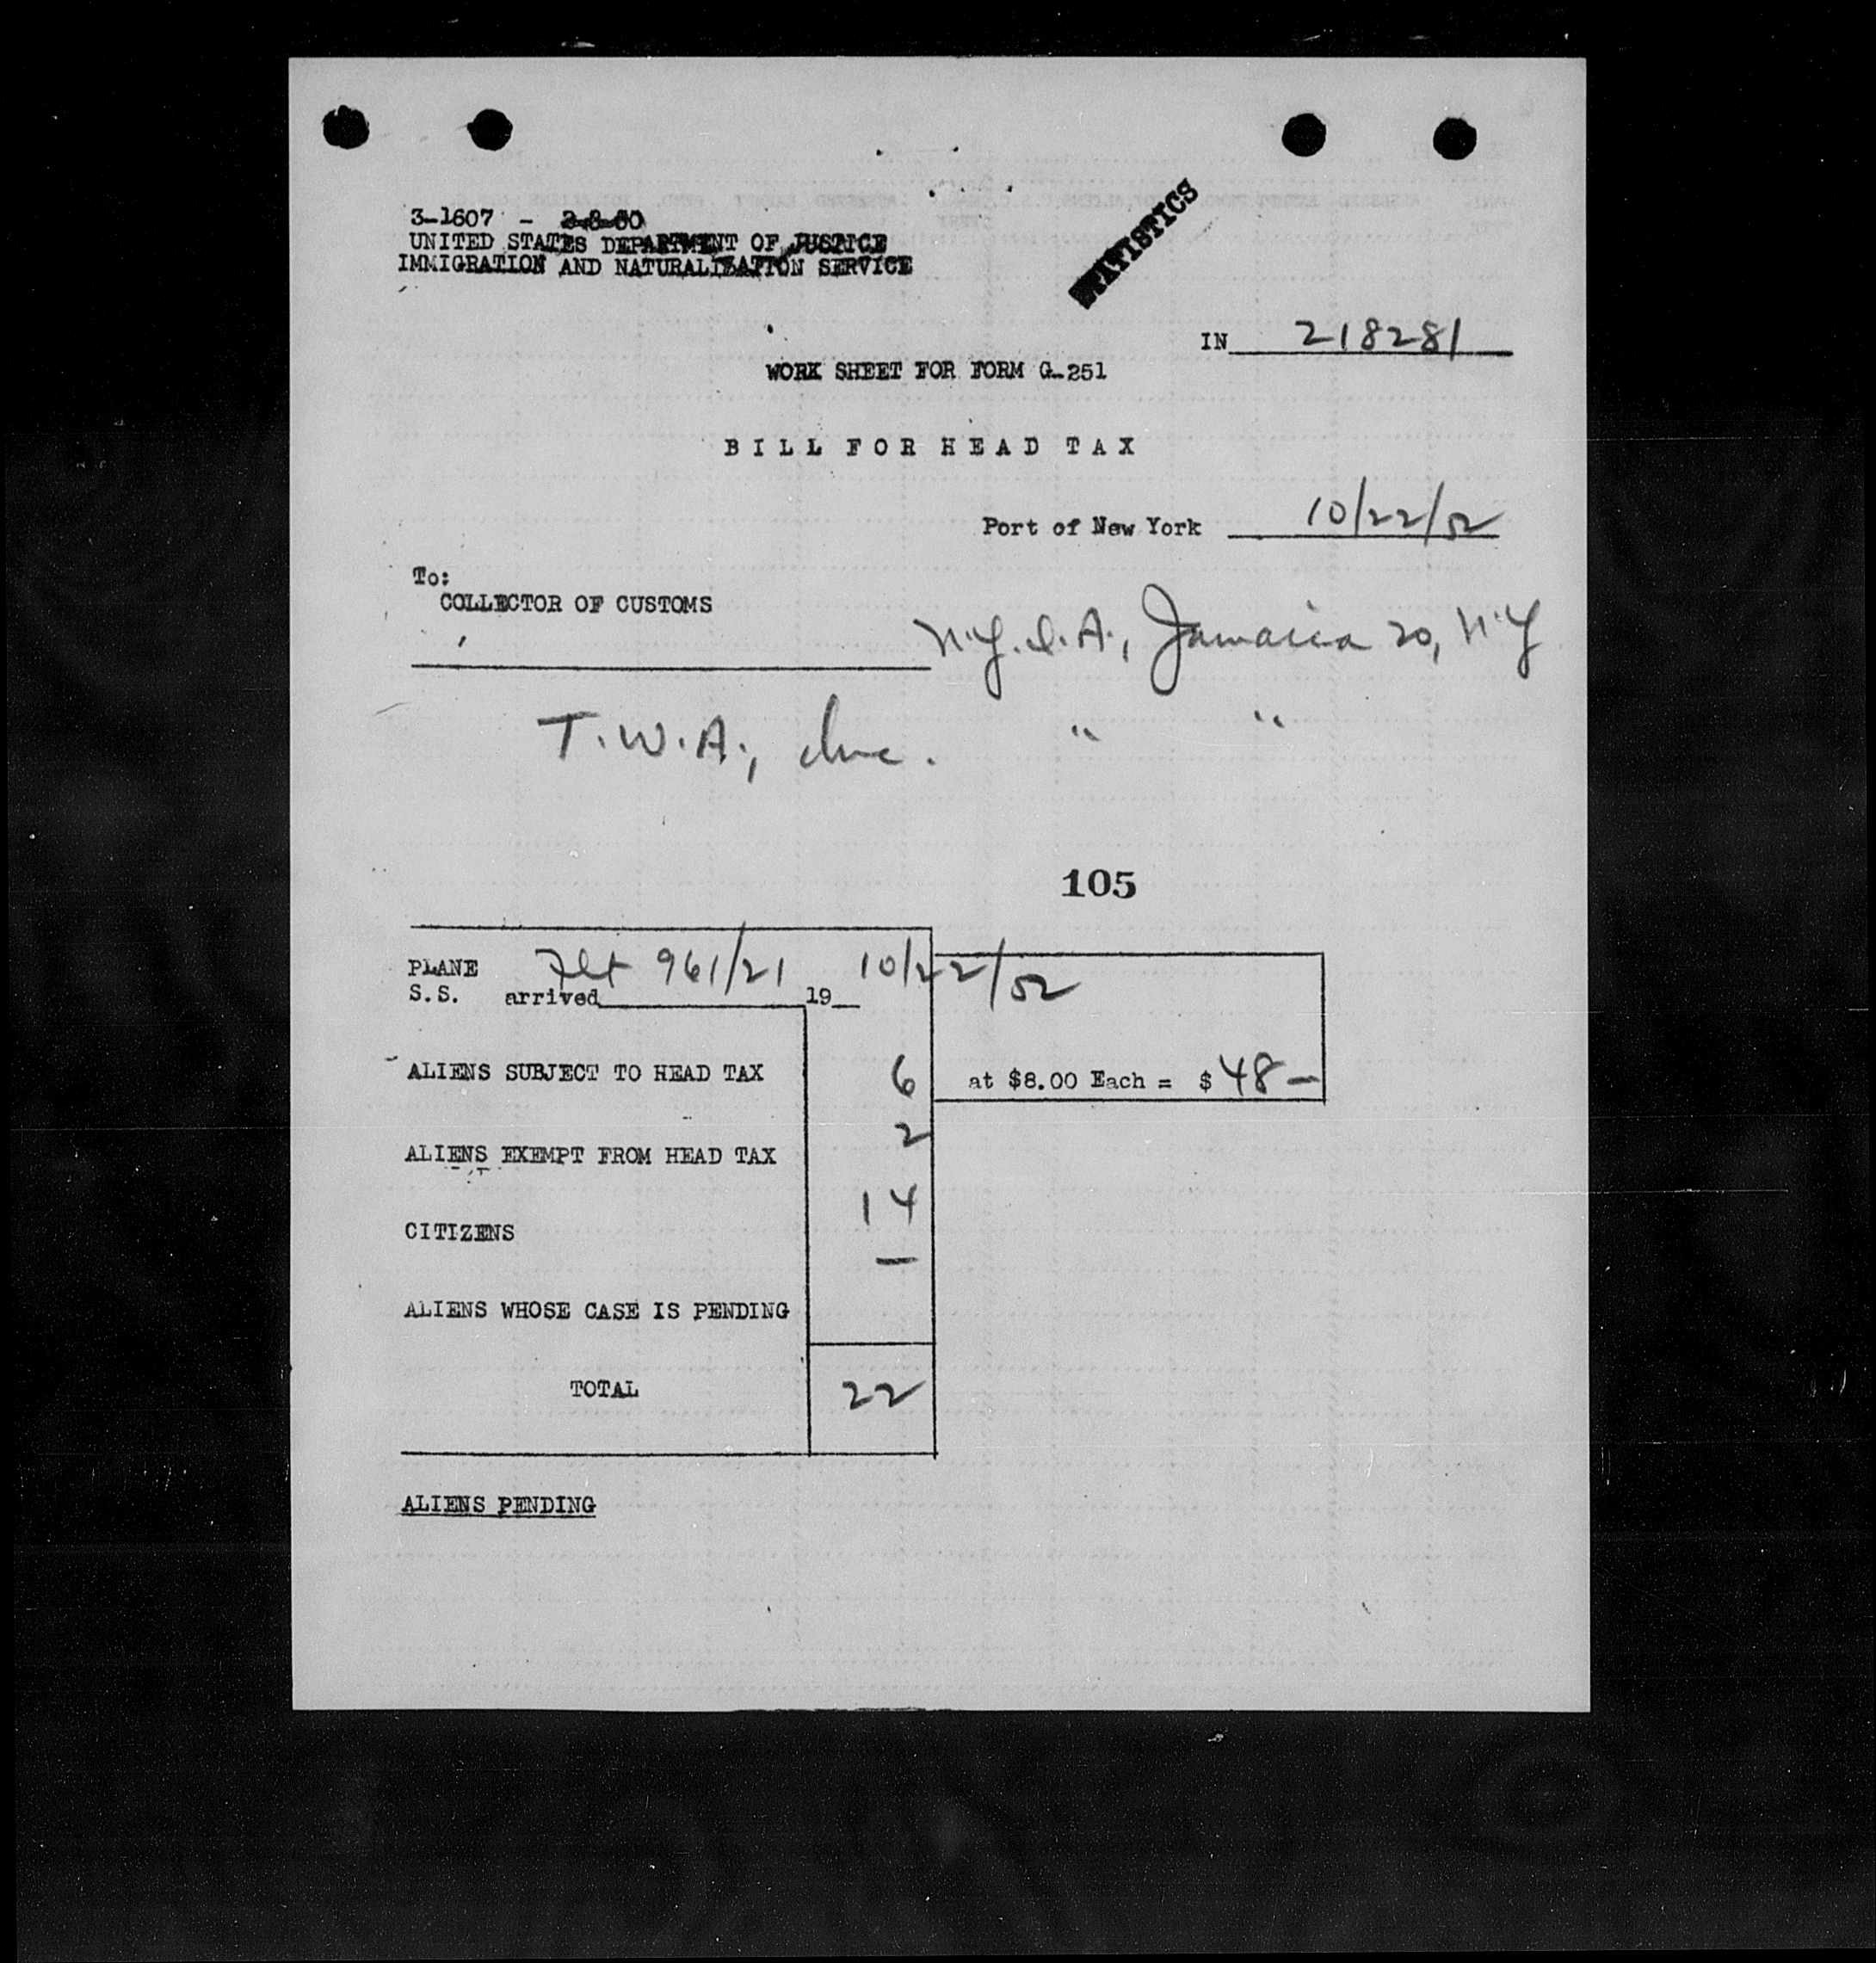 3-1607 - 2-8-50
UNITED STATES DEPARTMENT OF JUSTICE
IMMIGRATION AND NATURALIZATION SERVICE
STATISTICS
IN 218281
WORK SHEET FOR FORM G-251
BILL FOR HEAD TAX
Port of New York 10/22/52
To:
COLLECTOR OF CUSTOMS
N.Y.I.A., Jamaica 20, N.Y
T.W.A., Inc. " "
105
PLANE Flt 961/21 10/22/52
S.S. arrived 19
ALIENS SUBJECT TO HEAD TAX 6 at $8.00 Each = $ 48 —
ALIENS EXEMPT FROM HEAD TAX 2
CITIZENS 14
ALIENS WHOSE CASE IS PENDING —
TOTAL 22
ALIENS PENDING